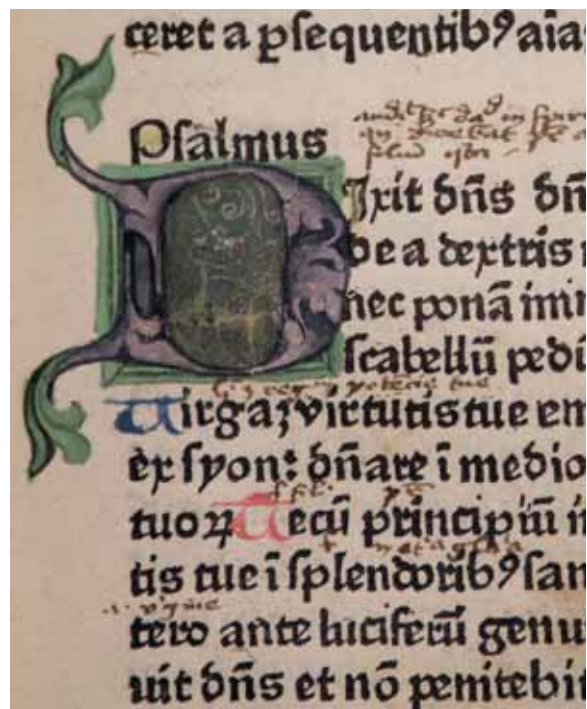 ceret a ꝑsequentibꝰ aīa
Psalmus
Dixit dn̄s dn̄
de a dextris
nec ponā imi
scabellū pedū
Uirgaꝫ virtutis tue em
ex syon: dn̄are ī medio
tuoꝝ Tecū principiū in
tis tue ī splendoribꝰ san
tero ante luciferū genu
uit dn̄s et nō penitebit